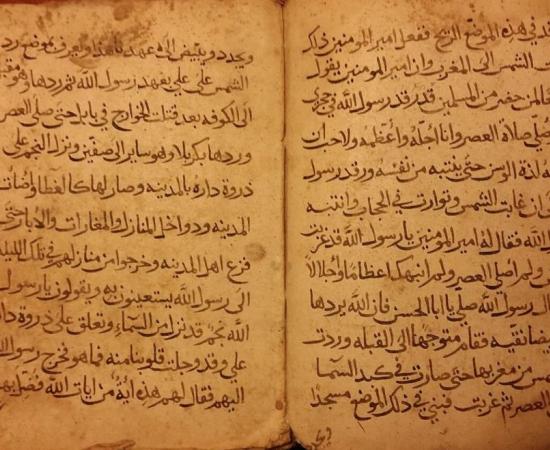 قد في هذه الموضع الريح ففعل امير المومنين ذلك
ت الشمس الى المغرب وان امير المومنين يقول
لمن حضر من المسلمين قد رقد رسول الله في حجري
صلي صلاة العصر وانا اجله واعظمه ولا احب ان
ه لذة الوسن حتى ينتبه من نفسه ورقد رسول
ان غابت الشمس وتوارت في الحجاب وانتبه
الله فقال له امير المومنين يا رسول الله قد غربت
ولم اصلي العصر ولم انبهك اعظاما واجلالا
ال رسول الله صلي يا ابا الحسن فان الله يردها
بيضا نقيه فقام متوجها الى القبله وردت
مس من مغربها حتى صارت في كبد السما
العصر ثم غربت فبني في ذلك الموضع مسجدا
ويجدد ويبيض الى عهدنا هذا ويعرف بموضع رد
الشمس على علي بعهد رسول الله ثم ردها وهو
الى الكوفه بعد قتات الخوارج في بابل حتى صلى العصر
وردها بكربلا وهو ساير الى صفين ونزل النجم على
ذروة داره بالمدينه وصار لها كالغطا واضات
المدينه ودواخل المنازل والمغارات والابار حتى
فزع اهل المدينه وخرجوا من منازلهم في تلك الليله
الى رسول الله يستعينون به ويقولون يا رسول
الله نجم قد نزل من السماء وتعلق على ذروة دار
علي وقد وجلت قلوبنا منه فما هو فخرج رسول الله
اليهم فقال لهم هذه اية من ايات الله فضل بها